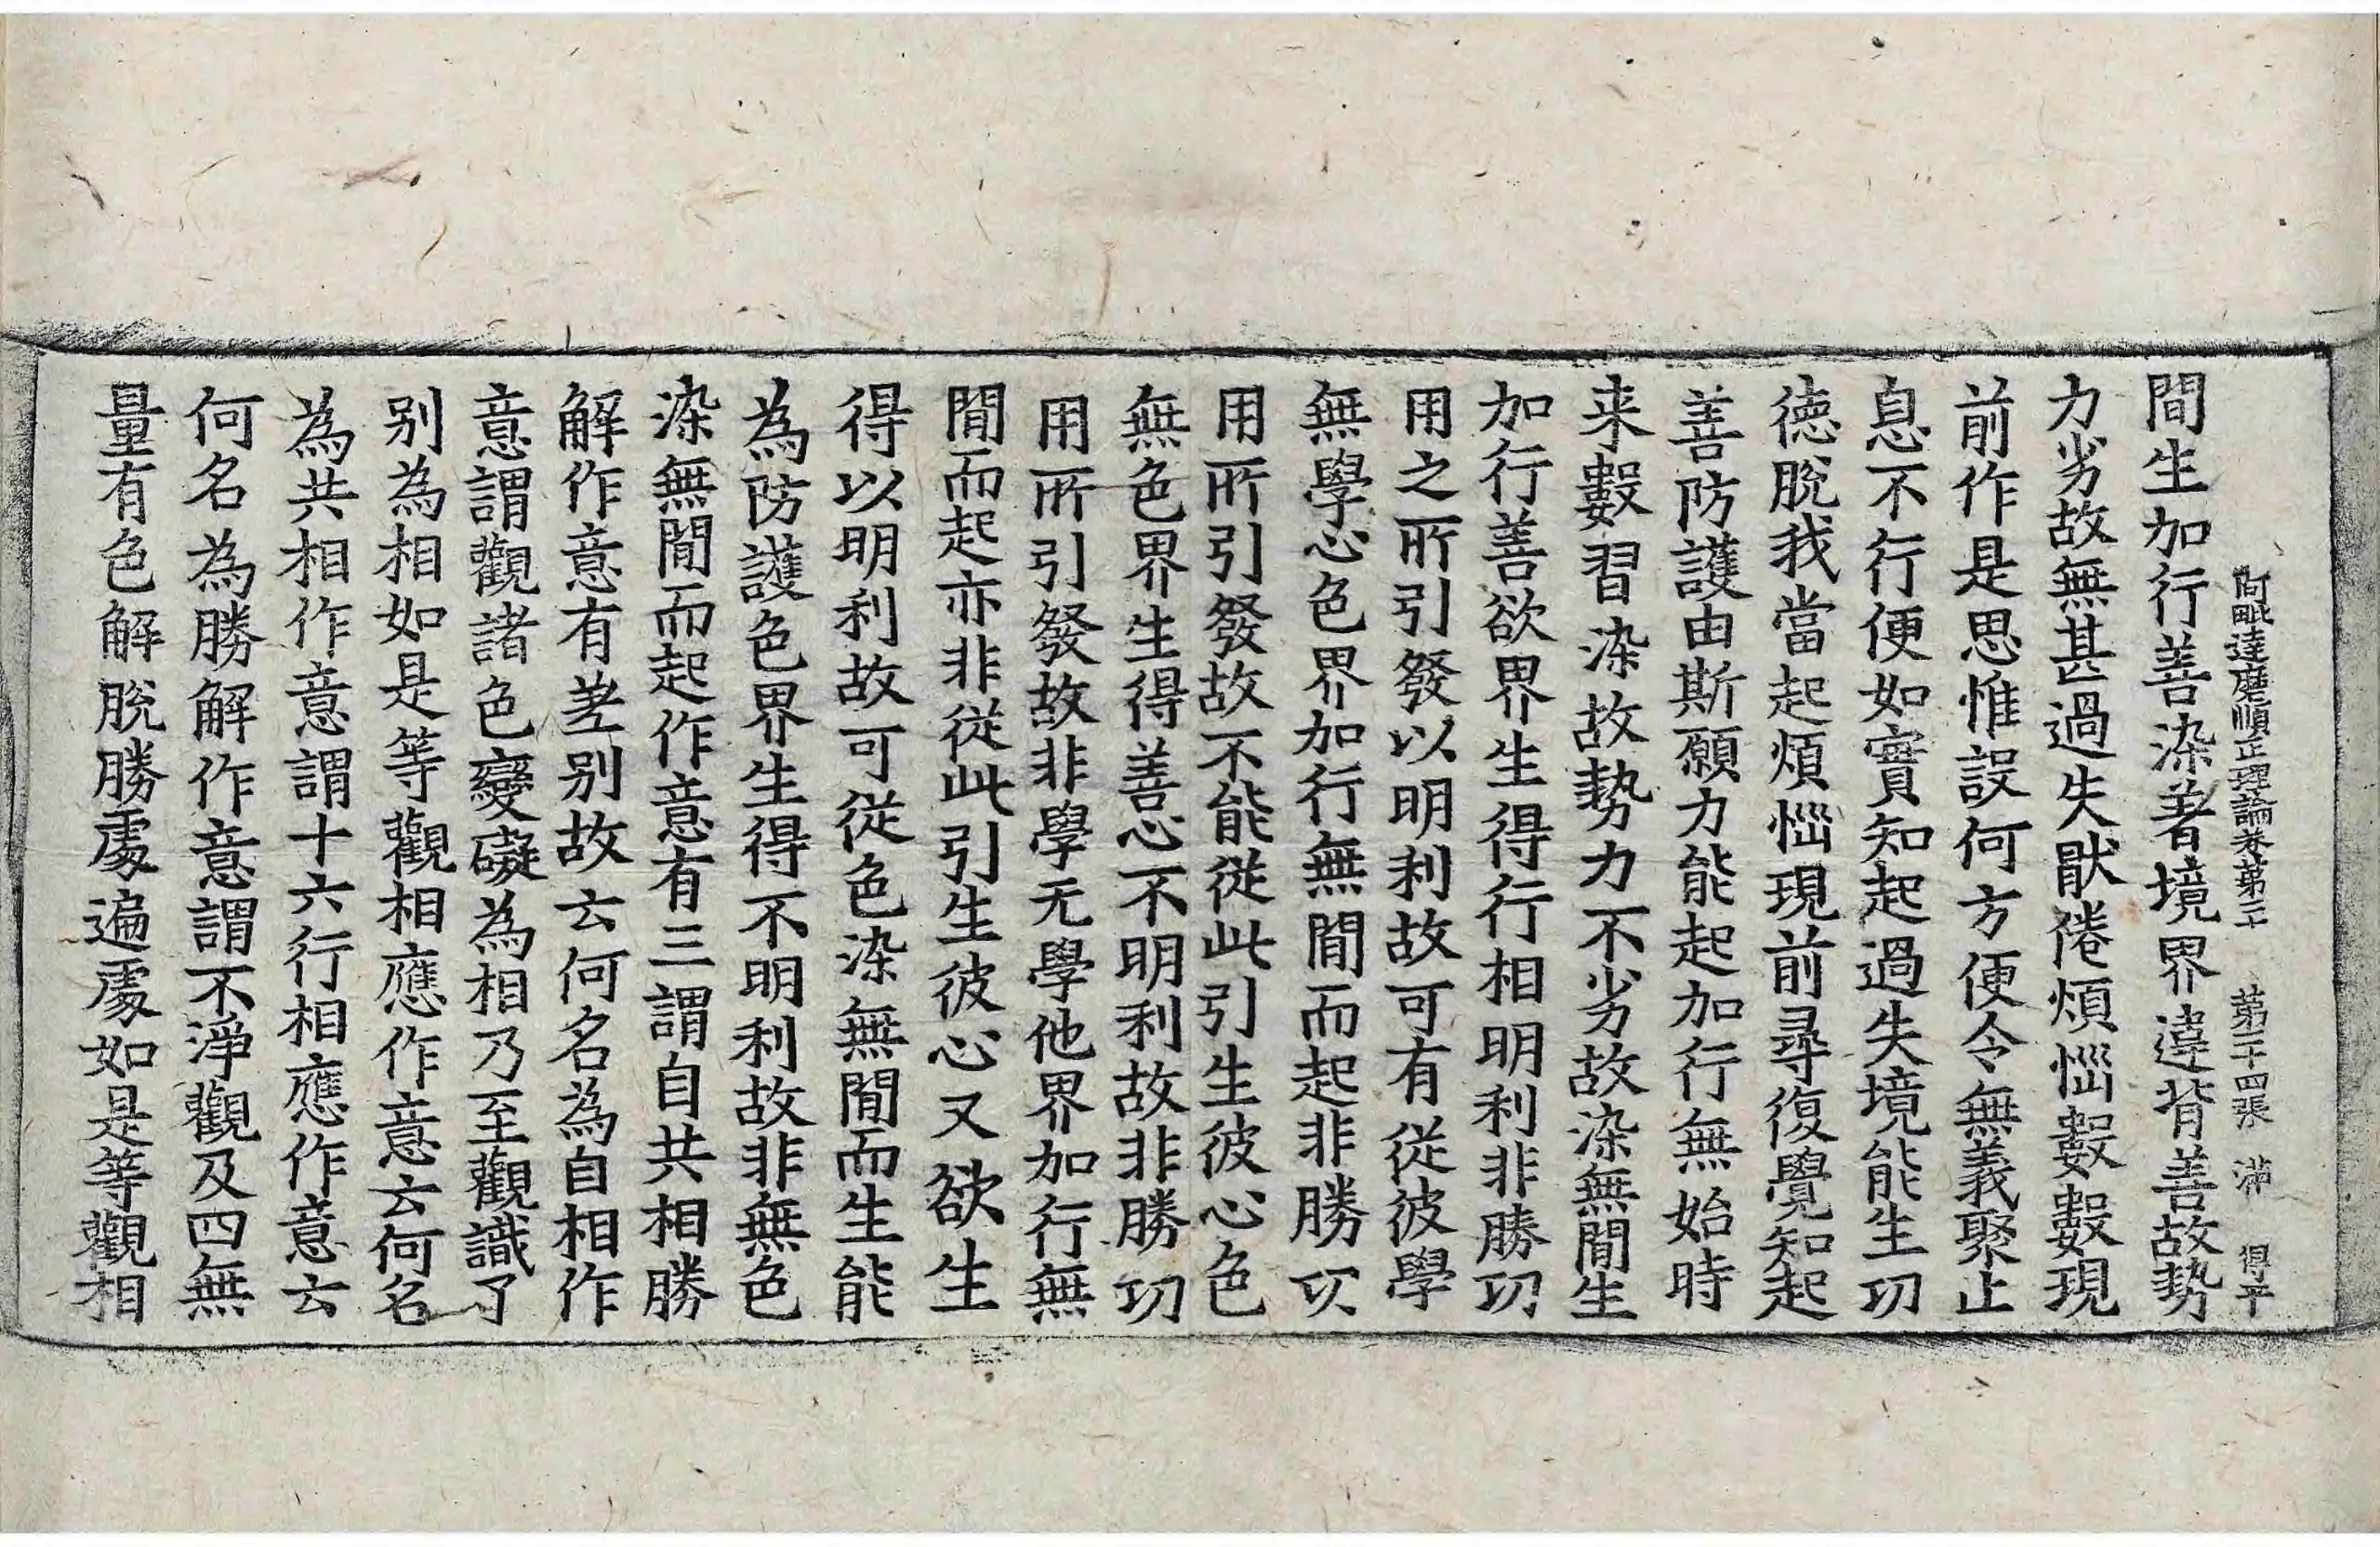 阿毗達磨順正理論卷第二十 第二十四張 滿 得平
間生加行善染著境界違背善故勢
力劣故無甚過失猒倦煩惱數數現
前作是思惟設何方便令無義聚止
息不行便如實知起過失境能生功
徳脫我當起煩惱現前尋復覺知起
善防護由斯願力能起加行無始時
来數習染故勢力不劣故染無間生
加行善欲界生得行相明利非勝功
用之所引發以明利故可有從彼學
無學心色界加行無間而起非勝功
用所引發故不能從此引生彼心色
無色界生得善心不明利故非勝功
用所引發故非學无學他界加行無
間而起亦非從此引生彼心又欲生
得以明利故可從色染無間而生能
為防護色界生得不明利故非無色
染無間而起作意有三謂自共相勝
解作意有差別故云何名為自相作
意謂觀諸色變礙為相乃至觀識了
別為相如是等觀相應作意云何名
為共相作意謂十六行相應作意云
何名為勝解作意謂不淨觀及四無
量有色解脫勝處遍處如是等觀相